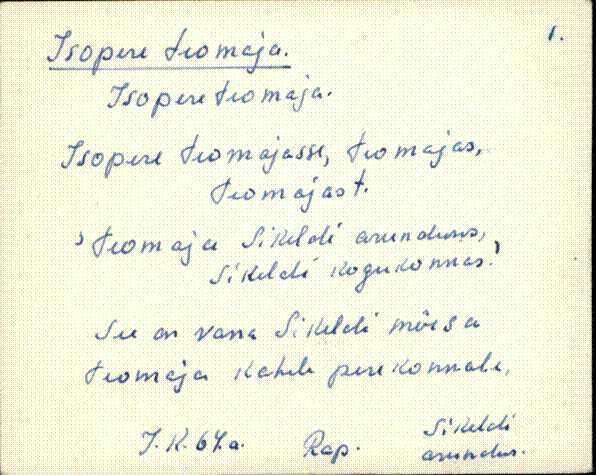 1.
Isopere teomaja.
Isopere teomaja.
Isopere teomajasse, teomajas,
teomajast.
'teomaja Sikeldi asunduses,
Sikeldi kogukonnas.'
See on vana Sikeldi mõisa
teomaja kahele perekonnale.
J.K. 64.a. Rap. Sikeldi
asundus.